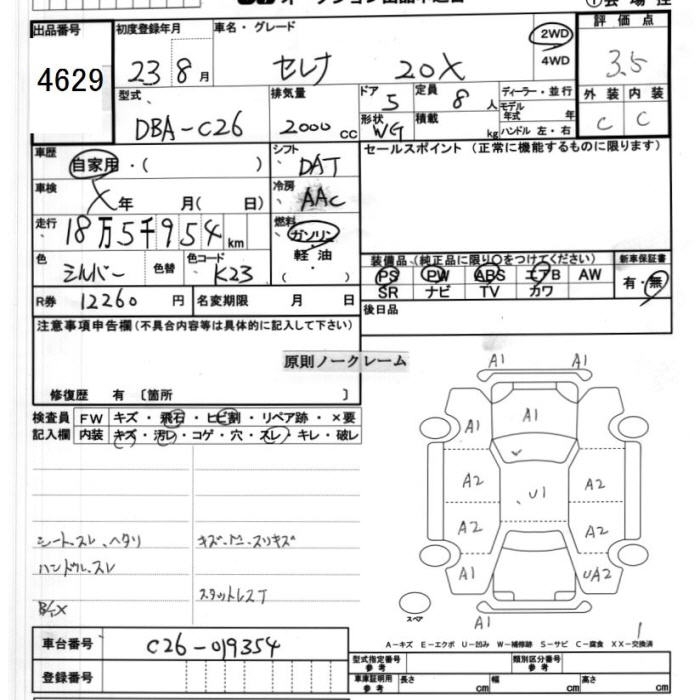 出品番号 4629
初度登録年月 23 8月
車名・グレード セレナ 20X
2WD
4WD
評価点 3.5
外装 内装
C C
型式 DBA-C26
排気量 2000cc
ドア 5
定員 8人
形状 WG
積載 kg
ディーラー・並行
モデル年式 年
ハンドル 左・右
車歴 自家用・( )
シフト DAT
セールスポイント(正常に機能するものに限ります)
車検 X年 月( 日)
冷房 AAC
走行 18万5千954km
燃料 ガソリン・軽油・( )
色 シルバー 色替 色コード K23
装備品(純正品に限り○をつけてください)
PS PW ABS エアB AW
SR ナビ TV カワ
新車保証書
有・無
R券 12260円 名変期限 月 日
後日品
注意事項申告欄(不具合内容等は具体的に記入して下さい)
原則ノークレーム
修復歴 有〔箇所 〕
検査員記入欄
FW キズ・飛石・ヒビ割・リペア跡・×要
内装 キズ・汚レ・コゲ・穴・スレ・キレ・破レ
シートスレ、ヘタリ
ハンドルスレ
キズ・凹・スリキズ
スタットレスT
A1 A1
A1 A1 A1
A2 U1 A2
A2 A2
A1 UA2
スペア
A1
1
A-キズ E-エクボ U-凹み W-補修跡 S-サビ C-腐食 XX-交換済
車台番号 C26-019354
登録番号
型式指定番号 参考
類別区分番号 参考
車庫証明用 参考 長さ cm 幅 cm 高さ cm